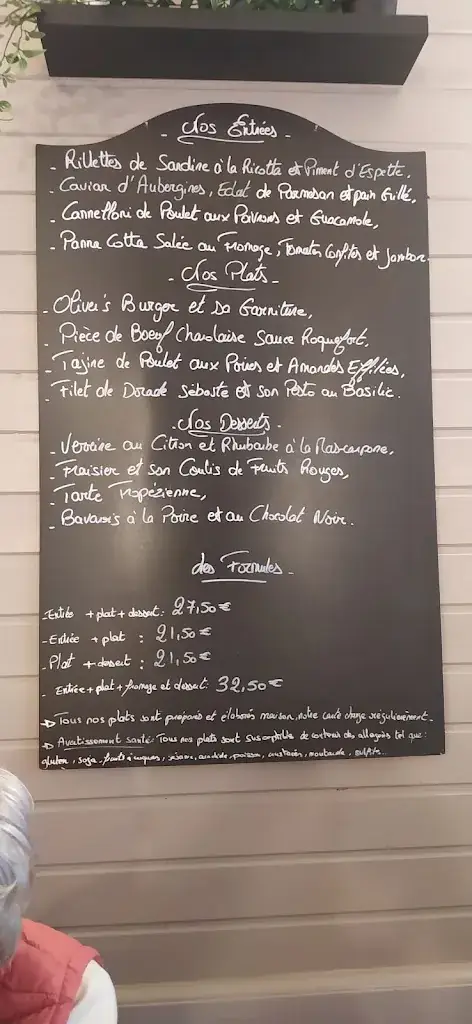 - Nos Entrées -
- Rillettes de Sardine à la Ricotta et Piment d'Espette,
- Caviar d'Aubergines, Eclat de Parmesan et pain Grillé,
- Cannelloni de Poulet aux Poivrons et Guacamole,
- Panna Cotta Salée au Fromage, Tomates Confites et Jambon.
- Nos Plats -
- Oliver's Burger et sa Garniture,
- Pièce de Boeuf Charolaise Sauce Roquefort,
- Tajine de Poulet aux Poires et Amandes Effilées,
- Filet de Dorade Sébaste et son Pesto au Basilic.
- Nos Desserts -
- Verrine au Citron et Rhubarbe à la Mascarpone,
- Fraisier et son Coulis de Fruits Rouges,
- Tarte Tropézienne,
- Bavarois à la Poire et au Chocolat Noir.
des Formules -
- Entrée + plat + dessert : 27,50€
- Entrée + plat : 21,50€
- Plat + dessert : 21,50€
- Entrée + plat + fromage et dessert : 32,50€
Tous nos plats sont préparés et élaborés maison, notre carte change régulièrement.
Avertissement santé : Tous nos plats sont susceptible de contenir des allergènes tel que :
gluten, soja, fruits à coques, sésame, arachide, poisson, crustacés, moutarde, sulfite...